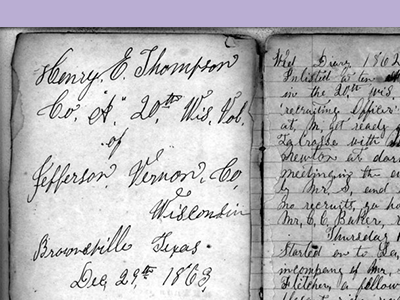 Henry. E. Thompson
Co. "A" 20th Wis. Vol.
of
Jefferson, Vernon, Co,
Wisconsin
Brownsville Texas.
Dec 29th 1863,
Diary 1862
Enlisted
in the 20th Wis
recruiting Officer
at, get ready
LaCrosse with
at dar
the
Mr. S, and
no recruits, so
Mr. C. C. Baker,
Thursday
Started on to La
in company of Mr.
Fletcher, a fellow